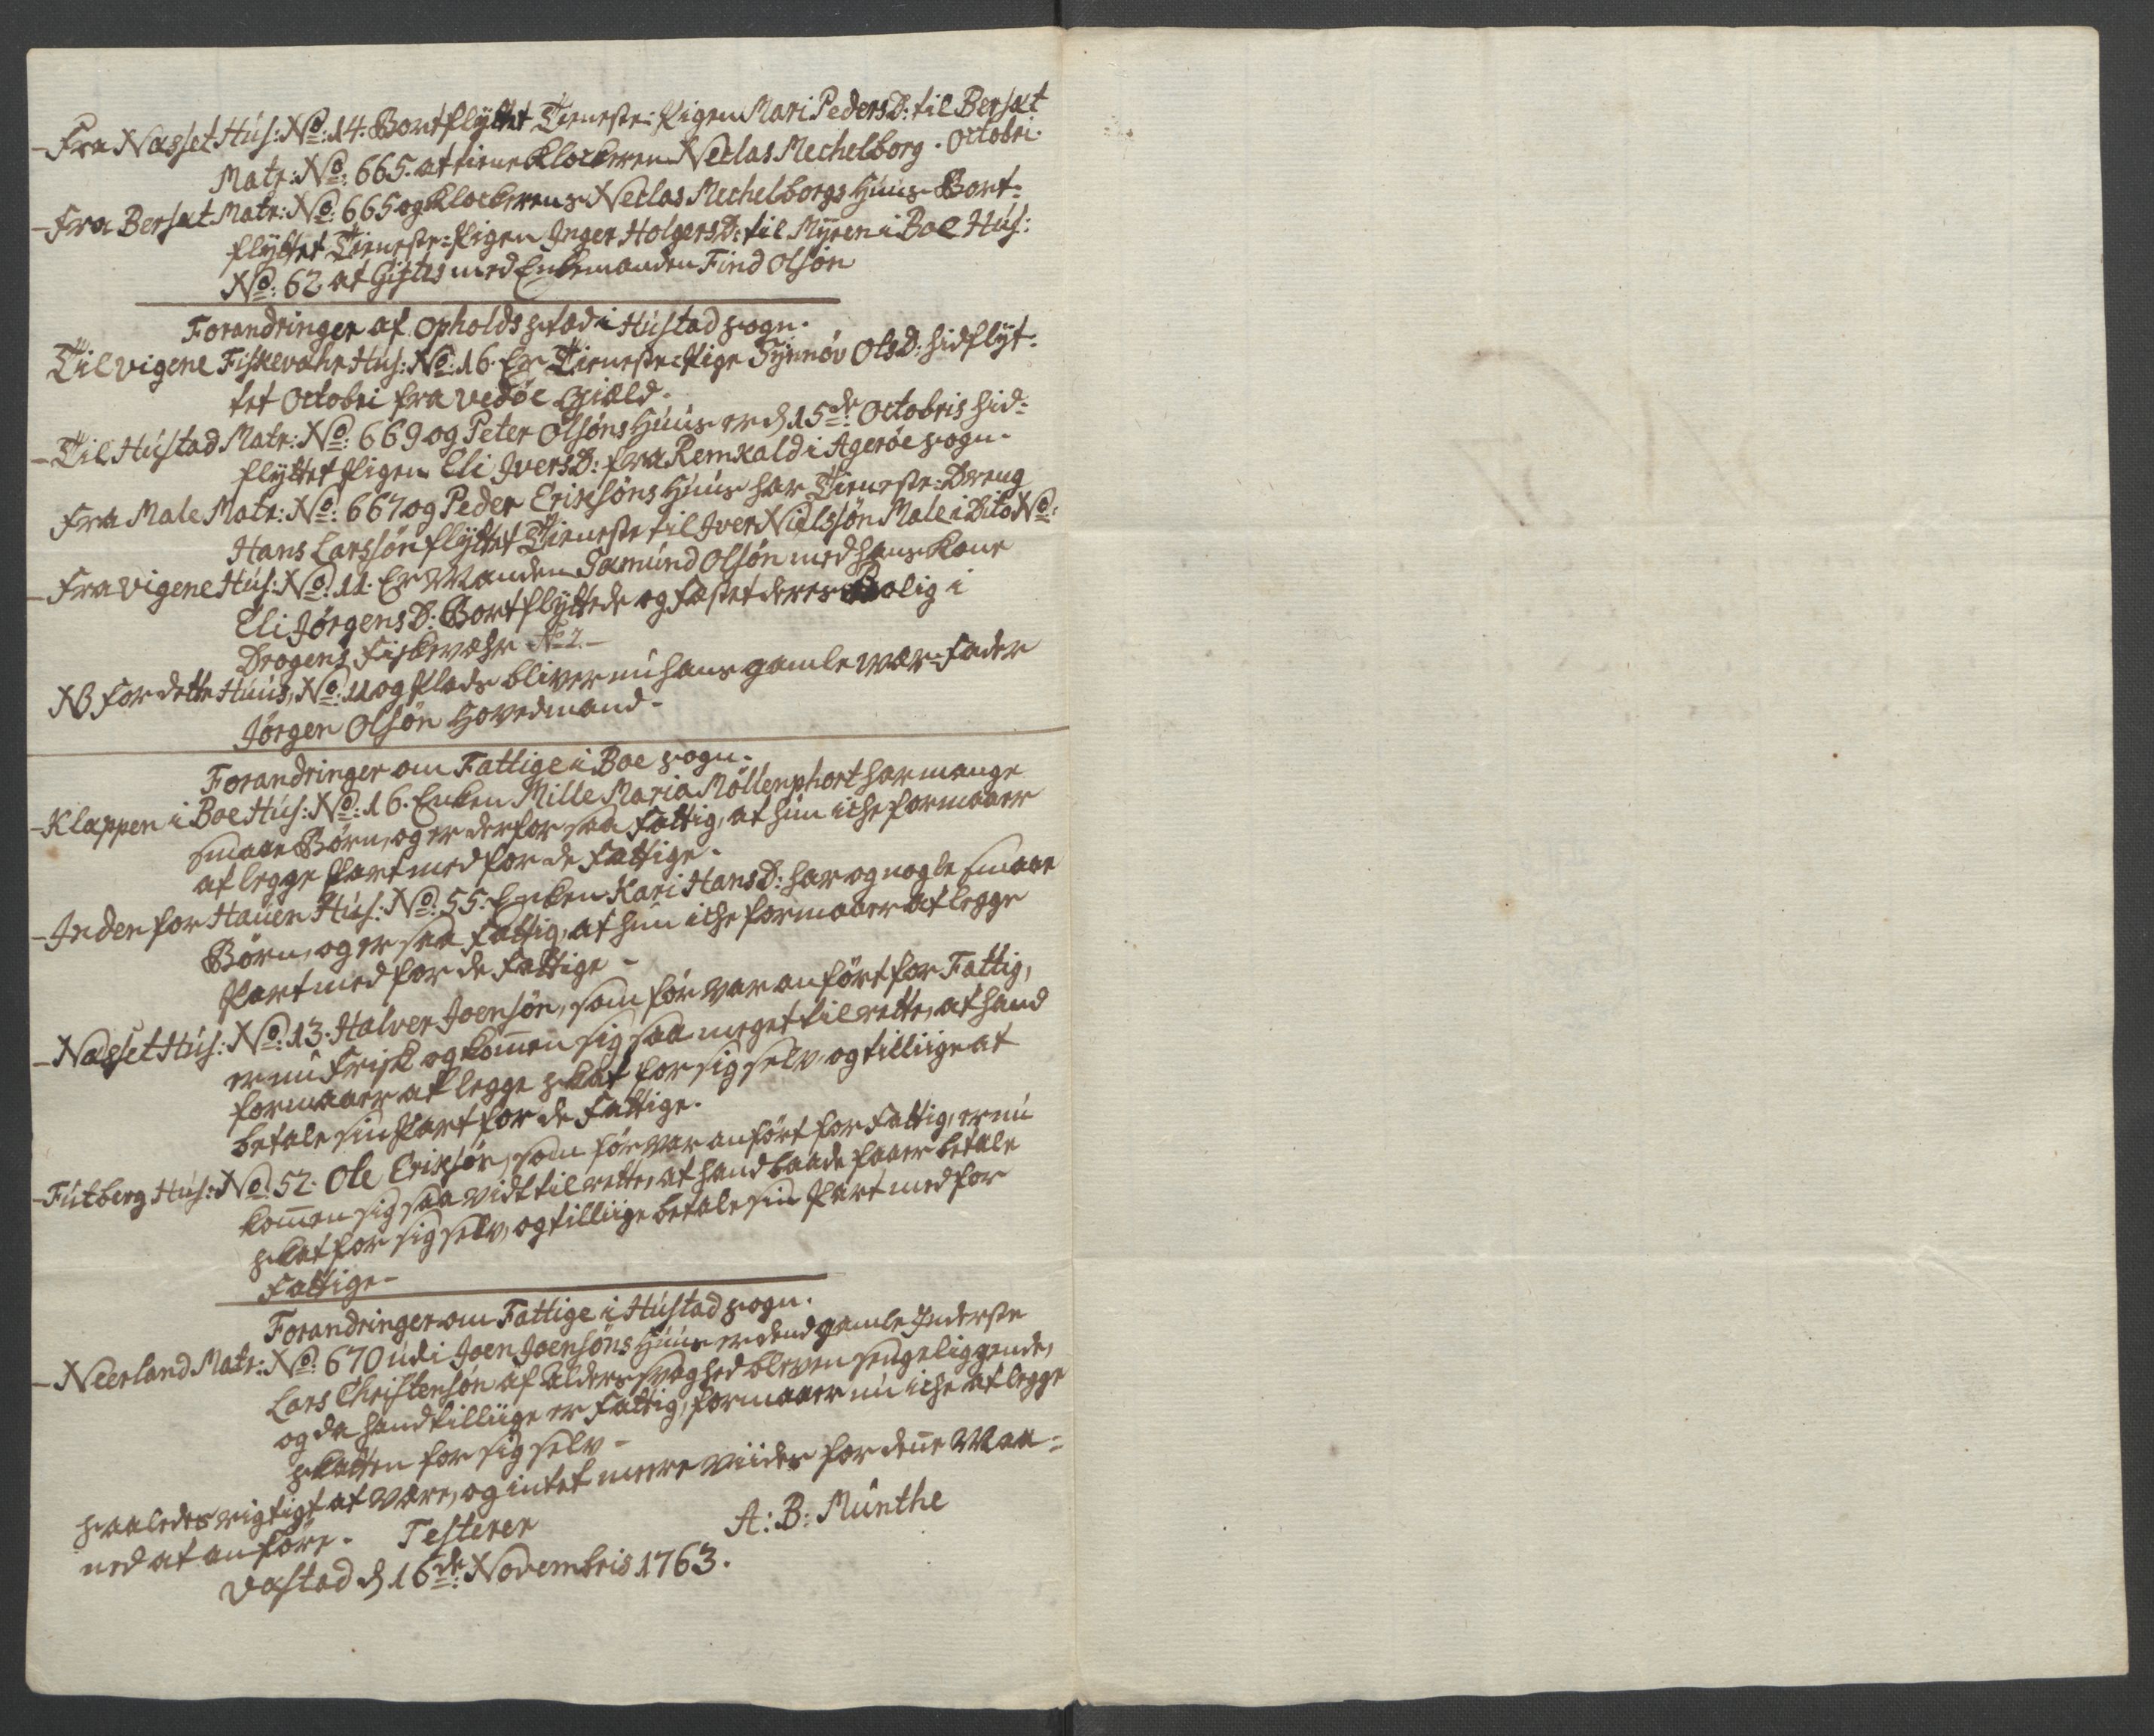 - Fra Nasset Hus: No: 14. Bortflyttet Tieneste-Pigen Mari Peders D: til Bersæt
Matr: No: 665. at tiene Klockeren Neclas Mechelborg. Octobri.
- Fra Bersæt Matr: No: 665 og Klockerens Neclas Mechelborgs Huus Bort-
flyttet Tieneste-Pigen Inger Holgers D: til Myren i Boe Hus:
No: 62 at Giftes med Enkemanden Find Olsøn
Forandringer af Opholds sted i Hustad sogn.
Til Vigene Fiskevæhr Hus: No: 16. Er Tieneste-Pige Synnøv Ols D: hidflyt-
tet Octobri fra Vedøe Giæld.
- Til Hustad Matr: No: 669 og Peter Olsøns Huus er d 15de Octobris hid-
flyttet Pigen Eli Ivers D: fra Remxald i Agerøe sogn.
Fra Male Matr: No: 667 og Peder Erixsøns Huus har Tieneste-Dreng
Hans Larssøn flyttet Tieneste til Iver Nielssøn Male i Dito No:
- Fra Vigene Hus: No: 11. Er Manden Samund Olsøn med hans Kone
Eli Jørgens D: Bortflyttede og fæstet deres Bolig i
Drogens Fiskevæhr No 2. -
NB For dette Huus, No: 11 og Plads bliver nu hans gamle Vær-Fader
Jørgen Olsøn Hovedmand -
Forandringer om Fattige i Boe sogn.
- Klappen i Boe Hus: No: 16. Enken Mille Maria Möllenphort har mange
smaae Børn, og er derfor saa Fattig, at hun iche formaaer
at legge Part med for de Fattige.
- Inden for Hauen Hus: No: 55. Enken Kari Hans D: har og nogle smaae
Børn, og er saa Fattig, at hun iche formaaer at legge
Part med for de Fattige -
- Nasset Hus: No: 13. Halver Joensøn, som før var anført for Fattig,
er nu Frisk og kommen sig saa meget til rette, at hand
formaaer at legge skat for sig selv, og tilliige at
betale sin Part for de Fattige.
- Futberg Hus: No: 52. Ole Erixsøn, som før var anført for Fattig, er nu
kommen sig saa vidt til rette, at hand baade faaer betale
skat for sig selv, og tilliige betale sin Part med for
Fattige -
Forandringer om Fattige i Hustad sogn.
- Neerland Matr: No: 670 udi Joen Joensøns Huus er dend gamle Inderste
Lars Christensøn af Alders svaghed bleven sengeliggende,
og da hand tilliige er Fattig, formaaer nu iche at legge
skatten for sig selv -
saaledes rigtigt at være, og intet meere viides for denne Maa-
ned at anføre. Testerer
A: B: Münthe
Vastad d 16de Novembris 1763.